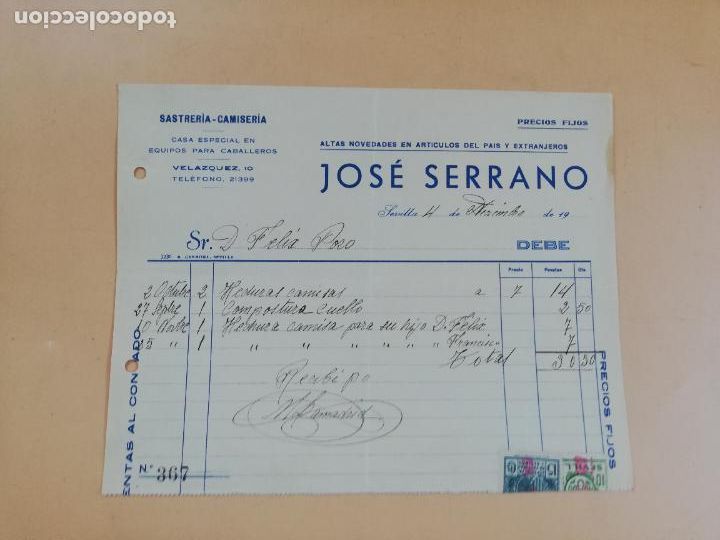 todocoleccion.net
SASTRERÍA-CAMISERÍA
CASA ESPECIAL EN
EQUIPOS PARA CABALLEROS
VELAZQUEZ, 10
TELÉFONO, 21399
PRECIOS FIJOS
ALTAS NOVEDADES EN ARTICULOS DEL PAIS Y EXTRANJEROS
JOSÉ SERRANO
Sevilla 4 de Diciembre de 19
Sr. D Felix Pozo
DEBE
Precio Pesetas Cts.
2 Octubre 2 Hechuras camisas a 7 14
27 1 Compostura cuello 2 50
10 1 Hechura camisa para su hijo D. Felix 7
25 " 1 " " " " " " Francisco 7
Total 30 50
Recibi
VENTAS AL CONTADO
PRECIOS FIJOS
N.º 367
15
10